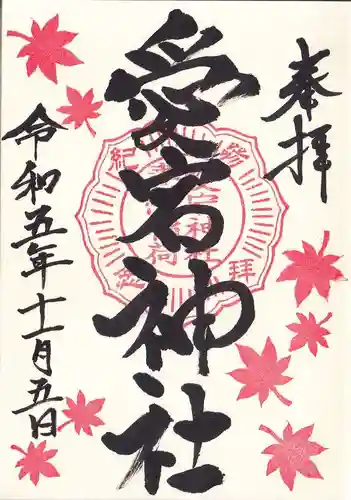 奉拝
愛宕神社
令和五年十一月五日